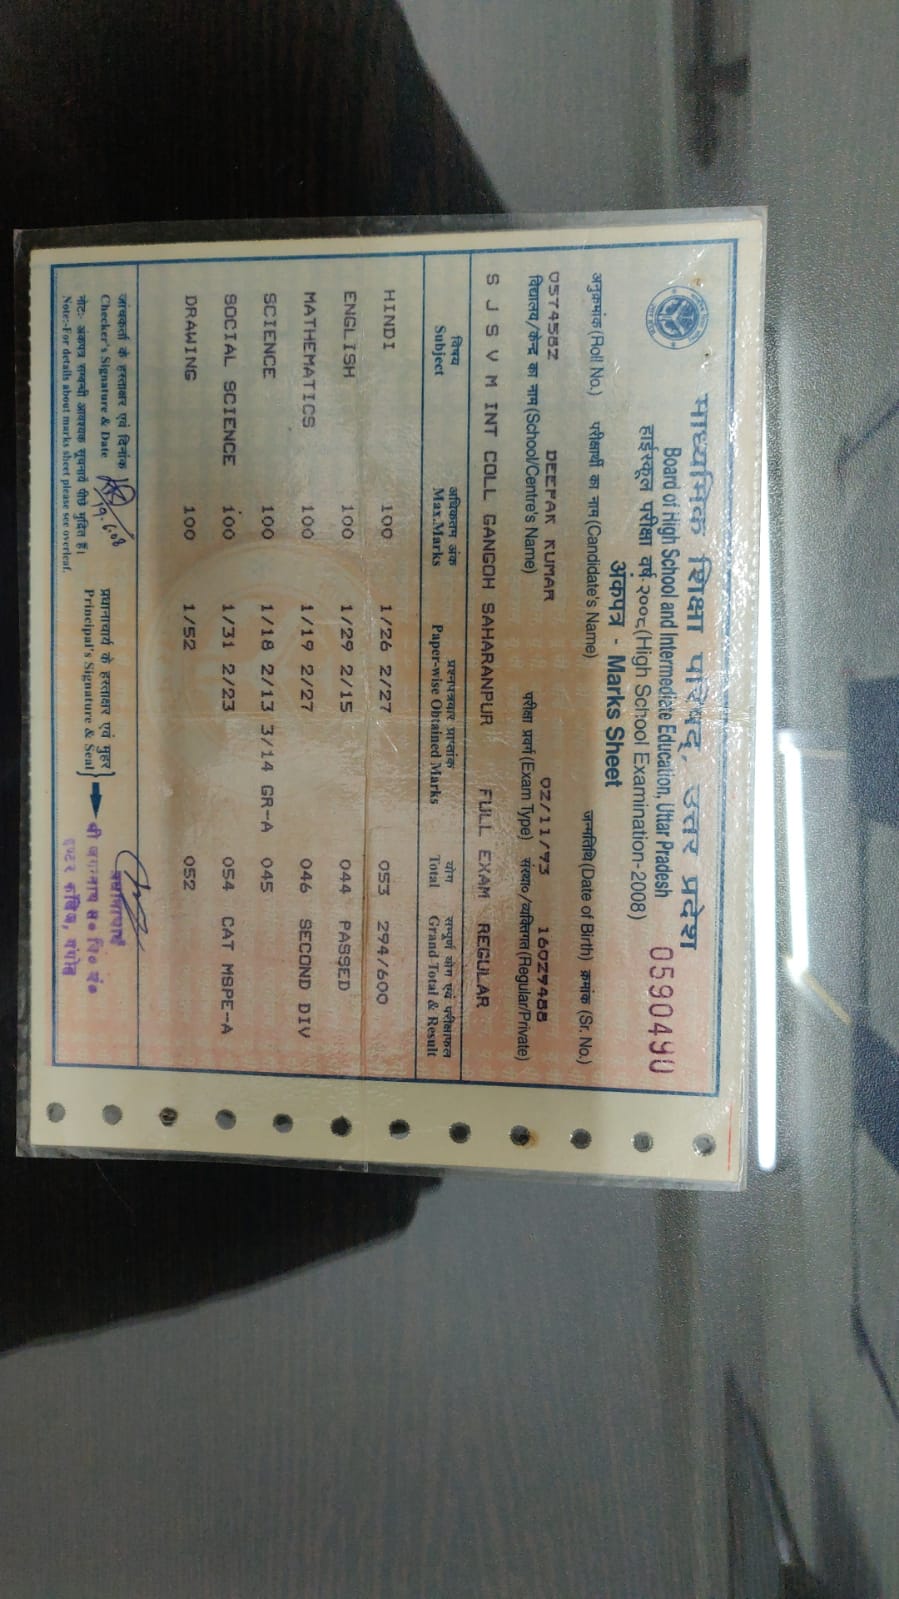 माध्यमिक शिक्षा परिषद्, उत्तर प्रदेश
Board of High School and Intermediate Education, Uttar Pradesh
हाईस्कूल परीक्षा वर्ष-२००८ (High School Examination-2008)
0590490
अंकपत्र - Marks Sheet
अनुक्रमांक (Roll No.) परीक्षार्थी का नाम (Candidate's Name) जन्मतिथि (Date of Birth) क्रमांक (Sr. No.)
0574582 DEEPAK KUMAR 02/11/93 16029488
विद्यालय/केन्द्र का नाम (School/Centre's Name) परीक्षा प्रवर्ग (Exam Type) संस्था०/व्यक्तिगत (Regular/Private)
S J S V M INT COLL GANGOH SAHARANPUR FULL EXAM REGULAR
विषय अधिकतम अंक प्रश्नपत्रवार प्राप्तांक योग सम्पूर्ण योग एवं परीक्षाफल
Subject Max.Marks Paper-wise Obtained Marks Total Grand Total & Result
HINDI 100 1/26 2/27 053 294/600
ENGLISH 100 1/29 2/15 044 PASSED
MATHEMATICS 100 1/19 2/27 046 SECOND DIV
SCIENCE 100 1/18 2/13 3/14 GR-A 045
SOCIAL SCIENCE 100 1/31 2/23 054 CAT MSPE-A
DRAWING 100 1/52 052
जांचकर्ता के हस्ताक्षर एवं दिनांक 19.6.08 प्रधानाचार्य के हस्ताक्षर एवं मुहर
Checker's Signature & Date Principal's Signature & Seal
प्रधानाचार्य
नोट:- अंकपत्र सम्बन्धी आवश्यक सूचनायें पीछे मुद्रित हैं।
Note:-For details about marks sheet please see overleaf.
इण्टर कॉलेज, गंगोह